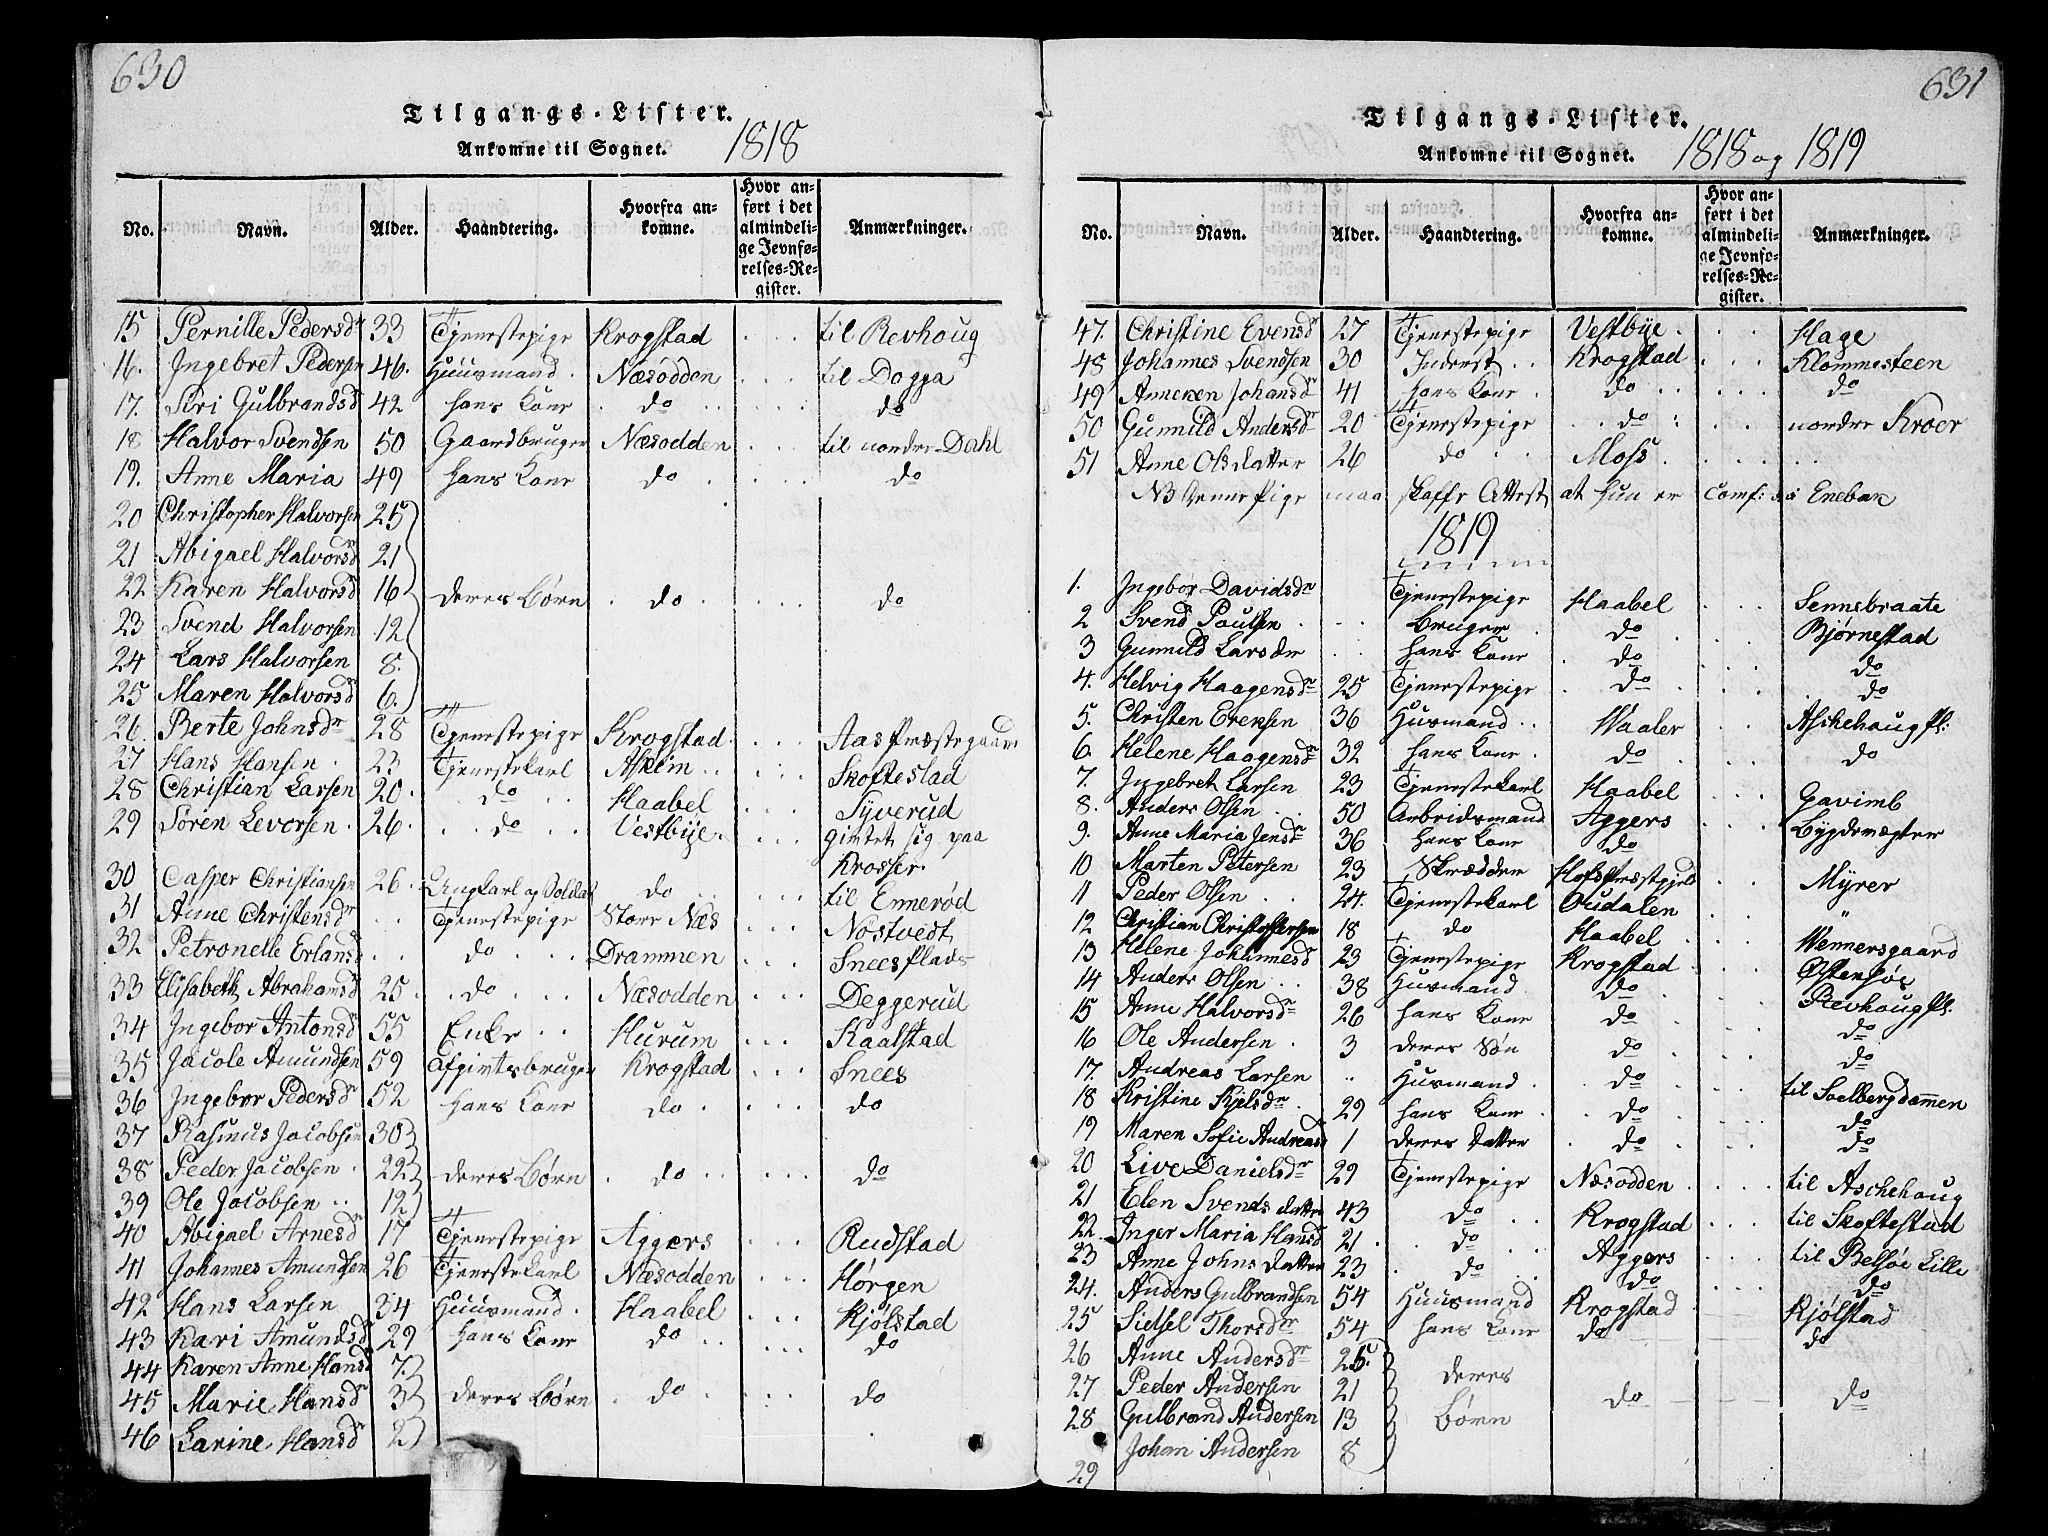 630
Tilgangs-Lister.
Ankomne til Sognet. 1818
No. Navn. Alder. Haandtering. Hvorfra ankomne. Hvor anført i det almindelige Jevnførelses-Register. Anmærkninger.
15 Pernille Pedersdr 33 Tjenestepige Krogstad . . . til Revhoug
16. Ingebret Pedersen 46. Huusmand. Næsodden . . . til Dogga
17. Siri Gulbrandsd 42 hans Kone . do . . do
18 Halvor Svendsen 50 Gaardbruger Næsodden . . . til nordre Dahl
19. Anne Maria 49 hans Kone do . . . . do
20 Christopher Halvorsen 25
21 Abigael Halvorsdr 21
22 Karen Halvorsdr 16 deres Børn . do . . . . do
23 Svend Halvorsen 12
24 Lars Halvorsen 8.
25 Maren Halvorsdr 6.
26. Berte Johnsdr 28 Tjenestepige Krogstad . . . Aas Præstegaard
27 Hans Hansen . 23 Tjenestekarl Askim . . . . . Skoftestad
28 Christian Larsen 20. . . do . . Haabel . . . Syverud
29 Søren Levorsen . 26. . . do . . Vestbye. . . . giwtet sig paa
Krosser.
30 Casper Christiansen 26. Ungkarl og Soldat do . . . . . til Ennerød
31 Anne Christensdr . . Tjenestepige Store Næs . . . Nostvedt
32 Petronelle Erlandsdr . . do . . . Drammen . . . Sneesplads
33 Elisabeth Abrahamsdr 25. . do . . . Næsodden . . . Deggerud
34 Ingebor Antonsdr 55 Enke . . Hurum . . . Kaalstad
35 Jacole Amundsen 59 Afgiwtsbruger Krogstad . . . Snees
36 Ingebor Pedersdr 52 hans Kone do . . . . do
37 Rasmus Jacobsen 30
38 Peder Jacobsen . 22 deres Børn . do . . . . . do
39 Ole Jacobsen . . 12
40 Abigael Arnesdr 17 Tjenestepige Aggers . . . Rudstad
41 Johannes Amundsen 26 Tjenestekarl Næsodden . . . Hørgen
42 Hans Larsen 34 Huusmand. Haabel . . . Kjølstad
43 Kari Amundsdr 29 hans Kone do . . . . . do
44 Karen Anne Hansd 7.
45 Marie Hansdr 3 deres Børn . do . . . . do
46 Larine Hansdr 2
631
Tilgangs-Lister.
Ankomne til Sognet. 1818 og 1819
No. Navn. Alder. Haandtering. Hvorfra ankomne. Hvor anført i det almindelige Jevnførelses-Register. Anmærkninger.
47. Christine Evensdr 27 Tjenestepige Vestbye . . . Hage
48 Johannes Svendsen 30 Inderst . . Krogstad . . . Klommesteen
49 Anneken Johansdr 41 hans Kone . do . . . . . do
50 Gunnild Andersdr 20 Tjenestepige . . do . . . . nordre Kroer
51 Anne Olsdatter 26 do . . Moss . . . . . .
NB denne Pige maa skaffe Attest at hun er Conf: i Eneban
1819
1. Ingebor Davidsdr Tjenestepige Haabel . . . Sennebraate
2 Svend Poulsen . . . Bruger . do . . . . Bjørnestad
3 Gunnild Larsdr . . hans Kone . do . . . . do
4. Helvig Haagensdr 25 Tjenestepige . do . . . . do
5. Christen Ereksen 36 Husmand . . Waaler . . . Aschehaug pl:
6. Helene Haagensdr 32 hans Kone . do . . . do
7. Ingebret Larsen 23 Tjenestekarl Haabel . . . Gavimb
8. Anders Olsen . . 50 Arbeidsmand Aggers . . . Bygdemægter
9. Anne Maria Jensdr 36 hans Kone do
10 Marten Petersen 23 Skrædder Hofs Præstgjeld . . . Myrer
11 Peder Olsen . . . 24. Tjenestekarl Oudalen . . . "
12 Christian Christoffersen 18 do Haabel . . . Wennersgaard
13 Helene Johannesd 23 Tjenestepige Krogstad . . . Østensøe
14 Anders Olsen . . 38 Husmand do . . . Revhoug pl.
15 Anne Halvorsdr 26 hans Kone do . . . do
16 Ole Andersen . 3 deres Søn do . . . do
17. Andreas Larsen " Husmand . do . . . til Soelbergdammen
18 Kristine Kjelsdr . 29 hans Kone . do . . . do
19 Maren Sofie Andreasd 1 deres Datter . do . . . do
20 Live Danielsdr 29 Tjenestepige Næsodden . . . til Aschehaug
21 Elen Svendsdatter 43 do . . Krogstad . . . til Skoftestad
22. Inger Maria Hansd 21 . . do . . Aggers . . . til Belsøe Lille
23 Anne Johnsdatter 23 . do . do . . . do
24. Anders Gulbrandsen 54 Huusmand Krogstad . . . Kjølstad
25 Sidsel Thorsdr 54 hans Kone do do
26 Anne Andersdr 25
27 Peder Andersen 21 deres do do
28 Gulbrand Andersen 13 Børn
29 Johan Andersen 8